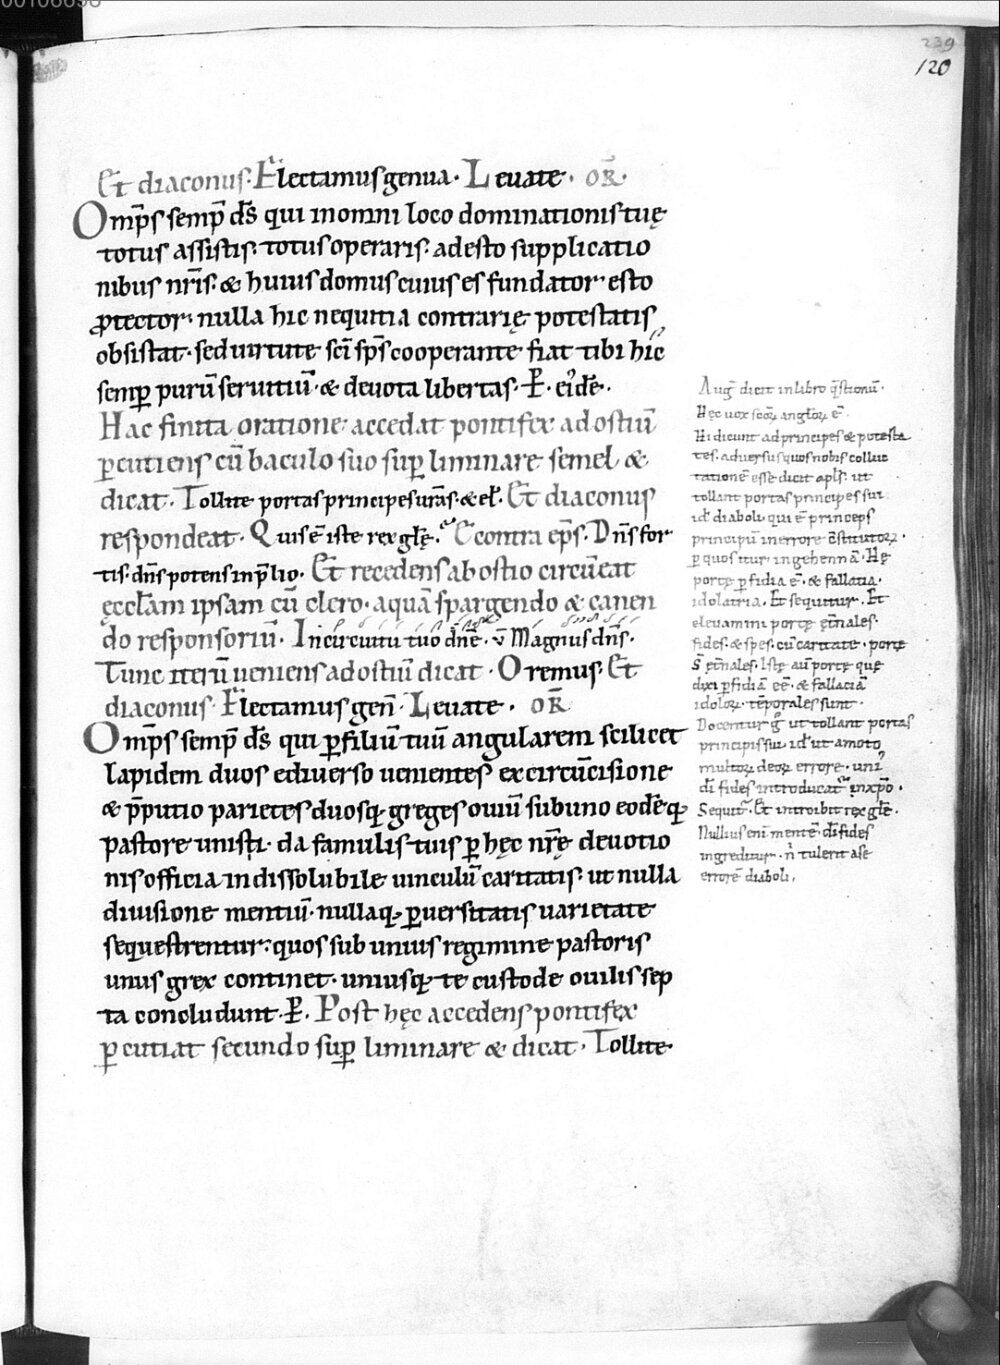 00106898
239
120
Et diaconus. Flectamus genua. Leuate. OR̄.
Omp̄s semp̄ ds̄ qui in omni loco dominationis tuę
totus assistis. totus operaris. adesto supplicatio
nibus nr̄is. & huius domus cuius es fundator esto
ꝓtector. nulla hic nequitia contrarię potestatis
obsistat. sed uirtute sc̄i sp̄s cooperante fiat tibi hic
semꝑ purū seruitiū. & deuota libertas. P. ei᾽dē.
Hac finita oratione. accedat pontifex ad ostiū
ꝑcutiens cū baculo suo suꝑ liminare semel &
dicat. Tollite portas principes ur̄as. & el᾽. Et diaconus
respondeat. Quis ē iste rex glę̄. Econtra ep̄s. Dn̄s for
tis. dn̄s potens in p̄lio. Et recedens ab ostio circūeat
ęccl̄am ipsam cū clero. aquā spargendo & canen
do responsoriū. In circuitu tuo dn̄e. v̄ Magnus dn̄s.
Tunc iterū ueniens ad ostiū dicat. Oremus. Et
diaconus. Flectamus gen̄. Leuate. OR̄
Omp̄s semp̄ ds̄ qui ꝑ filiū tuū angularem scilicet
lapidem duos ediuerso uenientes ex circūcisione
& p̄putio parietes duosq; greges ouiū sub uno eodēq;
pastore unisti. da famulis tuis ꝑ hęc nr̄ę deuotio
nis officia indissolubile uinculū caritatis. ut nulla
diuisione mentiū. nullaq; ꝑuersitatis uarietate
sequestrentur. quos sub unius regimine pastoris
unus grex continet. uniusq; te custode ouilis sep
ta concludunt. P. Post hęc accedens pontifex
ꝑcutiat secundo suꝑ liminare & dicat. Tollite.
Aug᾽ dicit in libro q̄stionū.
Hęc uox scōꝝ angl̄oꝝ ē.
Hi dicunt ad principes & potesta
tes. aduersus quos nobis colluc
tationē esse dicit apl̄s. ut
tollant portas principes sui
id᾽ diaboli. qui ē princeps
principiū in errore c̄stitutoꝝ.
ꝑ quos itur in gehennā. Hę
portę ꝑfidia ē. & fallatia.
idolatria. Et sequitur. Et
eleuamini portę et̄nales.
fides. & spes. cū caritate. portę
s̄ et̄nales. Istę aū portę quę
dixi ꝑfidiā eē. & fallaciā
idoloꝝ. tēporales sunt.
Docentur g᾽ ut tollant portas
principis sui. id᾽ ut amoto
multoꝝ deoꝝ errore. uni᾽
dī fides introducat᾽ in xp̄o.
Sequit᾽. Et introibit rex glę̄.
Nullius eni mentē dī fides
ingreditur. n᾽ tulerit a se
errorē diaboli.